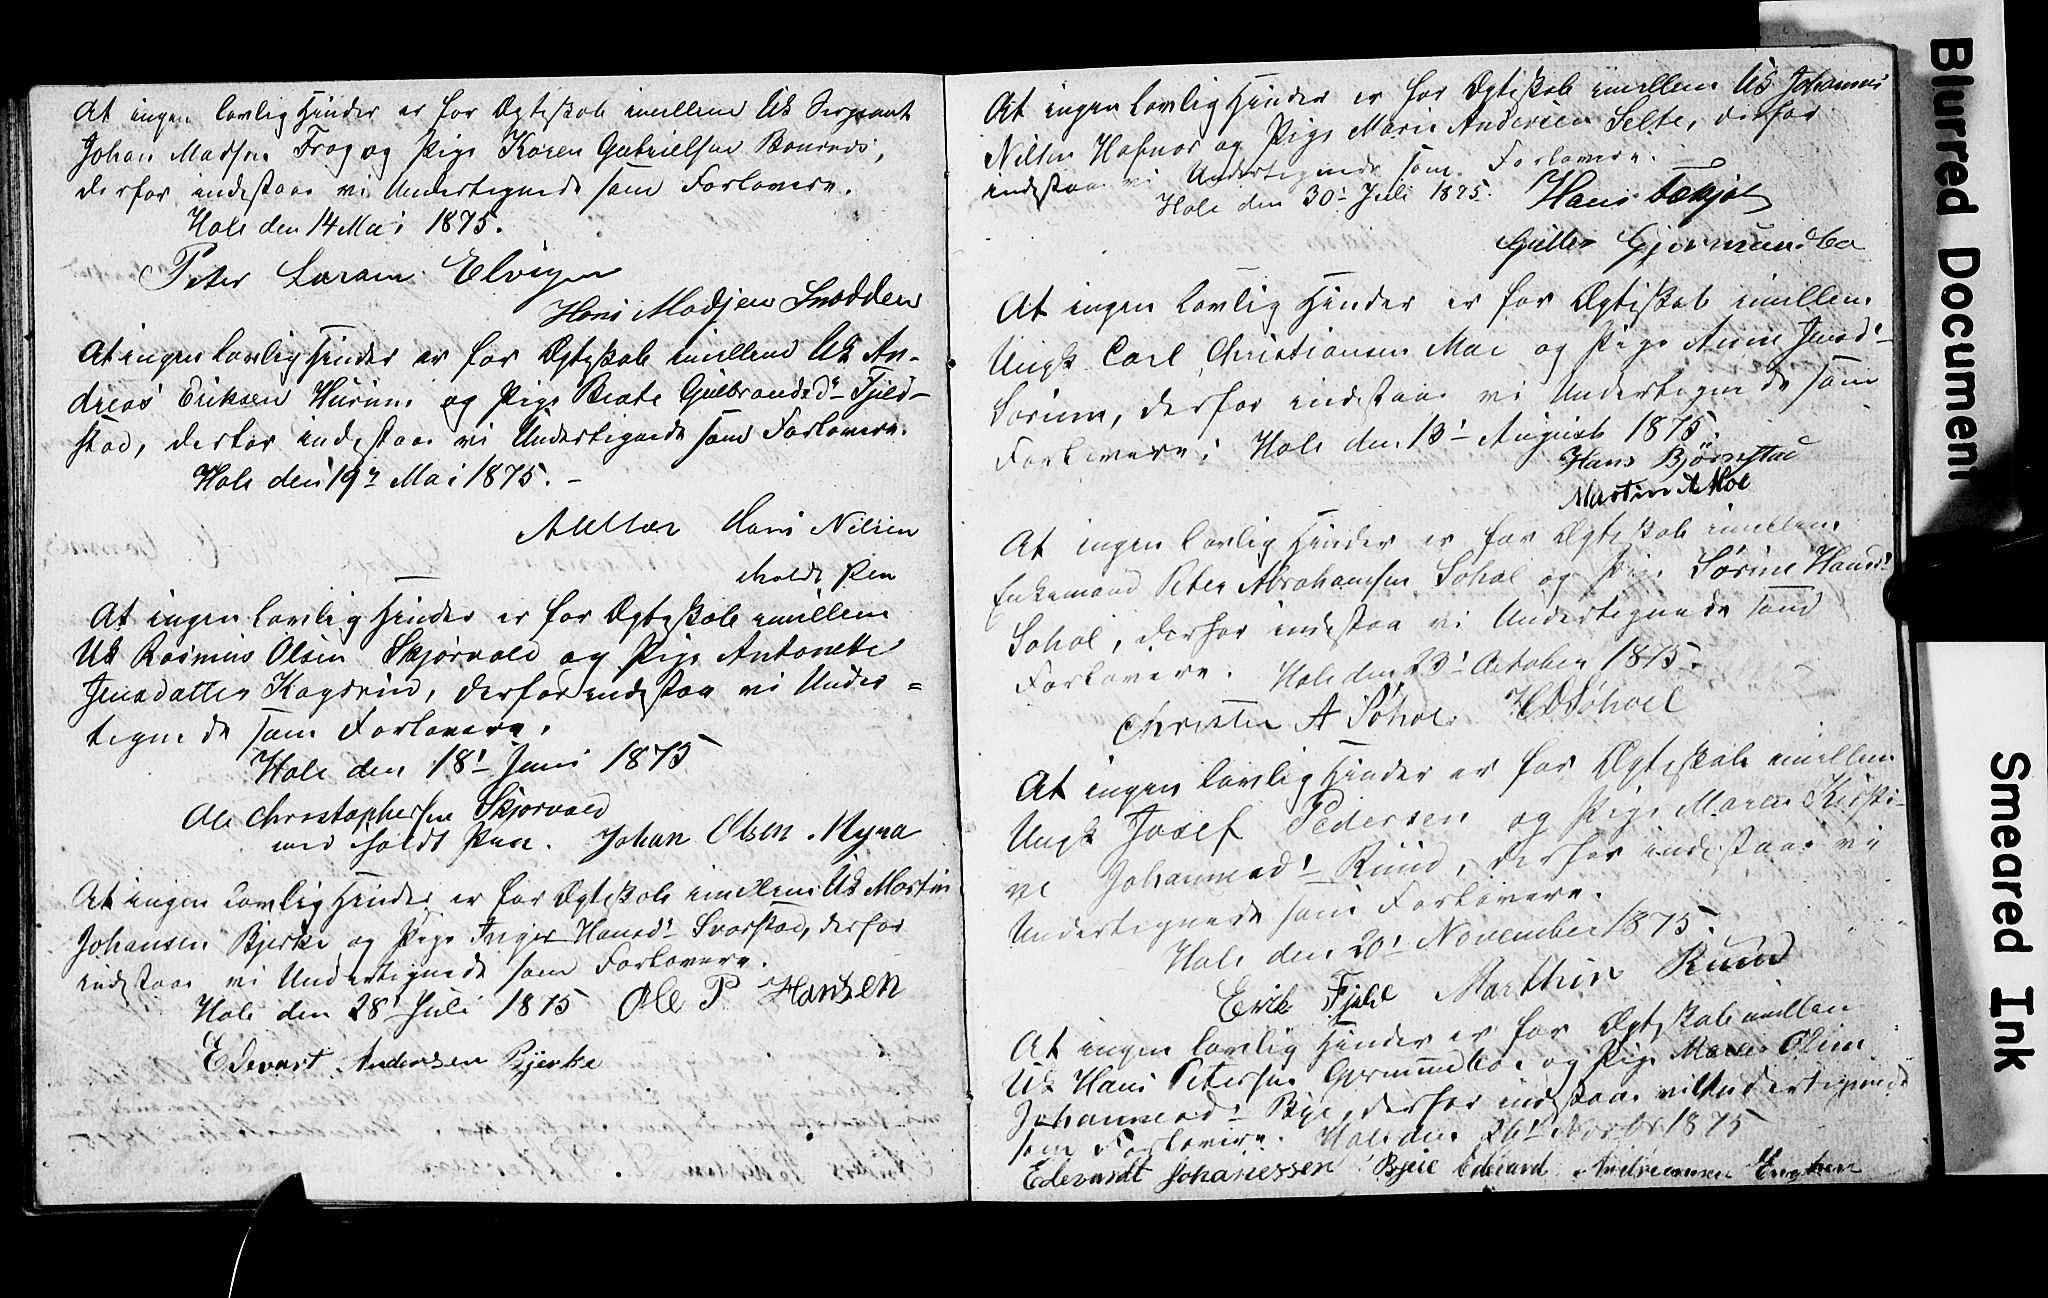 At ingen lovlig Hinder er for Ægteskab imellem Uk Sergeant
Johan Madsen Frog og Pige Karen Gabrielsen
derfor indestaae vi Undertegnede som Forlovere.
Hole den 14 Mai 1875.
Peter Elvigen
Hans Madsen
At ingen lovlig Hinder er for Ægteskab imellem Uk An-
dreas Eriksen Hurum og Pige Beate Gulbrandsd- Fjeld-
stad, derfor indestaae vi Undertegnede som Forlovere.
Hole den 19 Mai 1875.
Hans Nilsen
holdt Pen
At ingen lovlig Hinder er for Ægteskab imellem
Uk Rasmus Olsen Skjørvold og Pige Antonette
Jensdatter, derfor indestaae vi Under=
tegnede som Forlovere.
Hole den 18 Juni 1875
Ole Christophersen Skjørvold
med holdt Pen. Johan Olsen Myra
At ingen lovlig Hinder er for Ægteskab imellem Uk Martin
Johansen Bjerke og Pige Inger Hansd- Svarstad, derfor
indestaae vi Undertegnede som Forlovere.
Hole den 28 Juli 1875 Ole P Hansen
Edevart Andersen Bjerke
At ingen lovlig Hinder er for Ægteskab imellem Uk Johannes
Nilsen og Pige Marie Andersen Selte, derfor
indestaae vi Undertegnede som Forlovere.
Hole den 30- Juli 1875. Hans
Gulle Gjermundbo
At ingen lovlig Hinder er for Ægteskab imellem
Ungk Carl Christiansen Moe og Pige Anne Jensd-
Sørum, derfor indestaae vi Undertegnede som
Forlovere; Hole den 13- August 1875.
Hans Bjørnstad
Martin A Moe
At ingen lovlig Hinder er for Ægteskab imellem
Enkemand Peter Abrahamsen Søhol og Pige Sørine Hansd-
Søhol, derfor indestaae vi Undertegnede som
Forlovere. Hole den 23- October 1875.
Christen A Søhol H O Søhoel
At ingen lovlig Hinder er for Ægteskab imellem
Ungk Josef Pedersen og Pige Maren Kristi-
ne Johannesd- Ruud, derfor indestaae vi
Undertegnede som Forlovere.
Hole den 20- November 1875.
Erik Fjeld Marthin Ruud
At ingen lovlig Hinder er for Ægteskab imellem
Uk Hans Petersen Gjermundboe og Pige Maren Oline
Johannesd- Bye, derfor indestaae vi Undertegnede
som Forlovere. Hole den 26- Novbr 1875
Edevardt Johanessen Bye Edevard Andreassen
Blurred Document
Smeared Ink